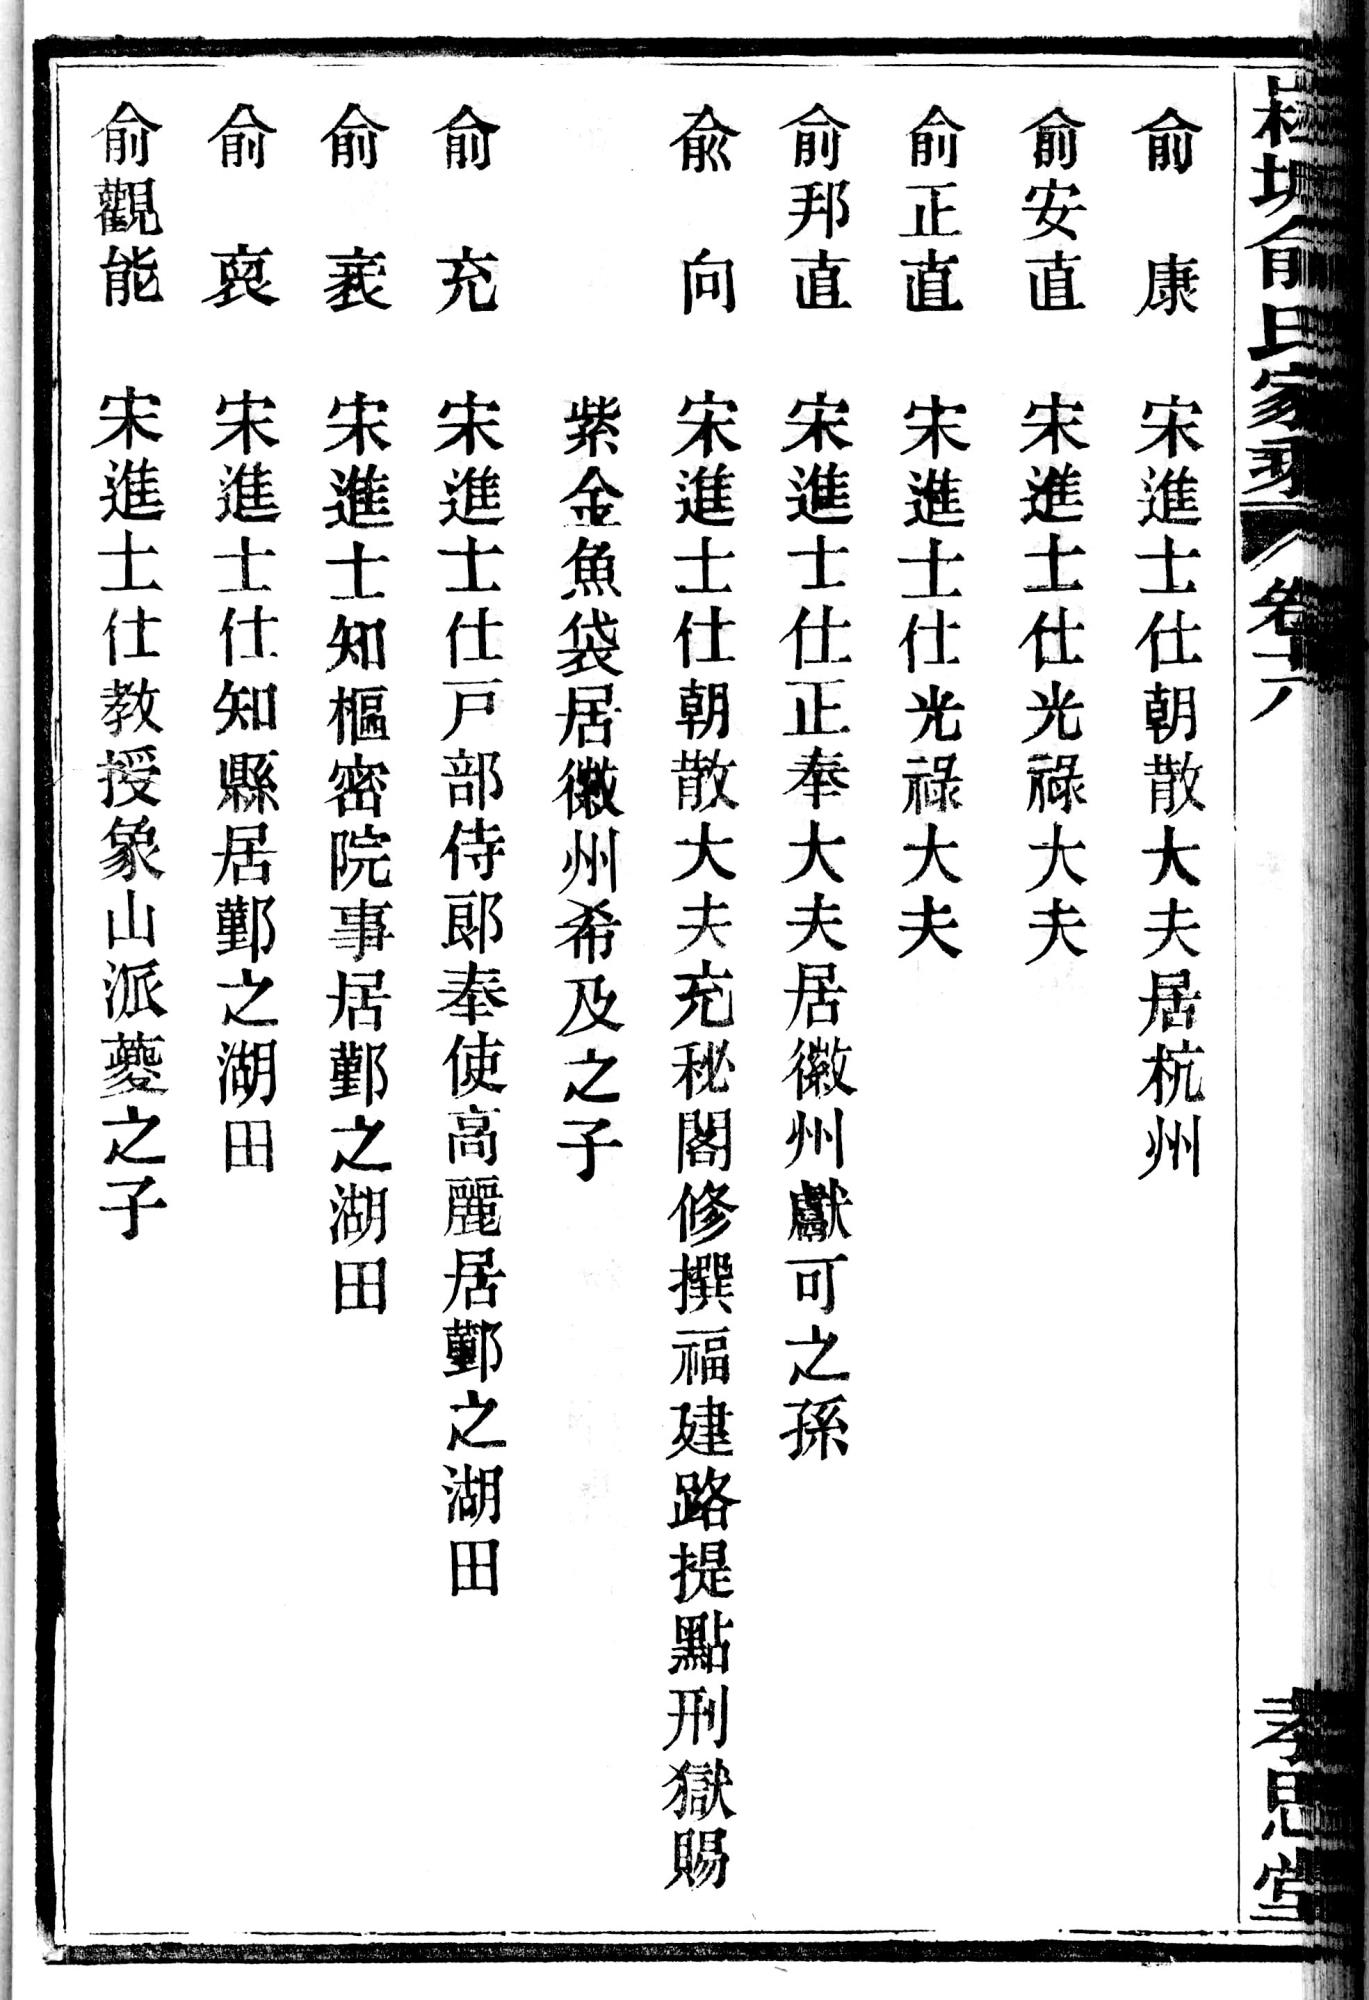 俞氏家乘 卷十八 孝思堂
俞 康 宋進士仕朝散大夫居杭州
俞安直 宋進士仕光祿大夫
俞正直 宋進士仕光祿大夫
俞邦直 宋進士仕正奉大夫居徽州獻可之孫
俞 向 宋進士仕朝散大夫充秘閣修撰福建路提點刑獄賜
紫金魚袋居徽州希及之子
俞 充 宋進士仕戸部侍郎奉使高麗居鄞之湖田
俞 袤 宋進士知樞密院事居鄞之湖田
俞 袞 宋進士仕知縣居鄞之湖田
俞觀能 宋進士仕教授象山派夔之子